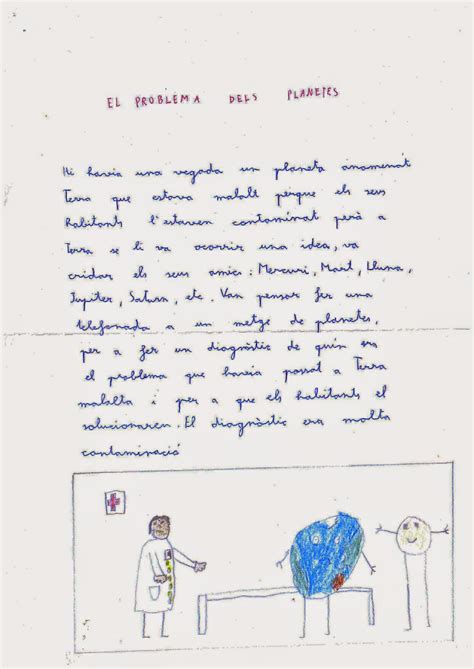 EL PROBLEMA DELS PLANETES
Hi havia una vegada un planeta anomenat
Terra que estava malalt perque els seus
habitants l'estaven contaminat però a
Terra se li va ocorrir una idea, va
cridar els seus amics: Mercuri, Mart, Lluna,
Jupiter, Saturn, etc. Van pensar fer una
telefonada a un metge de planetes,
per a fer un diagnòstic de quin era
el problema que havia possat a Terra
malalta i per a que els habitants el
solucionaren. El diagnòstic era molta
contaminació